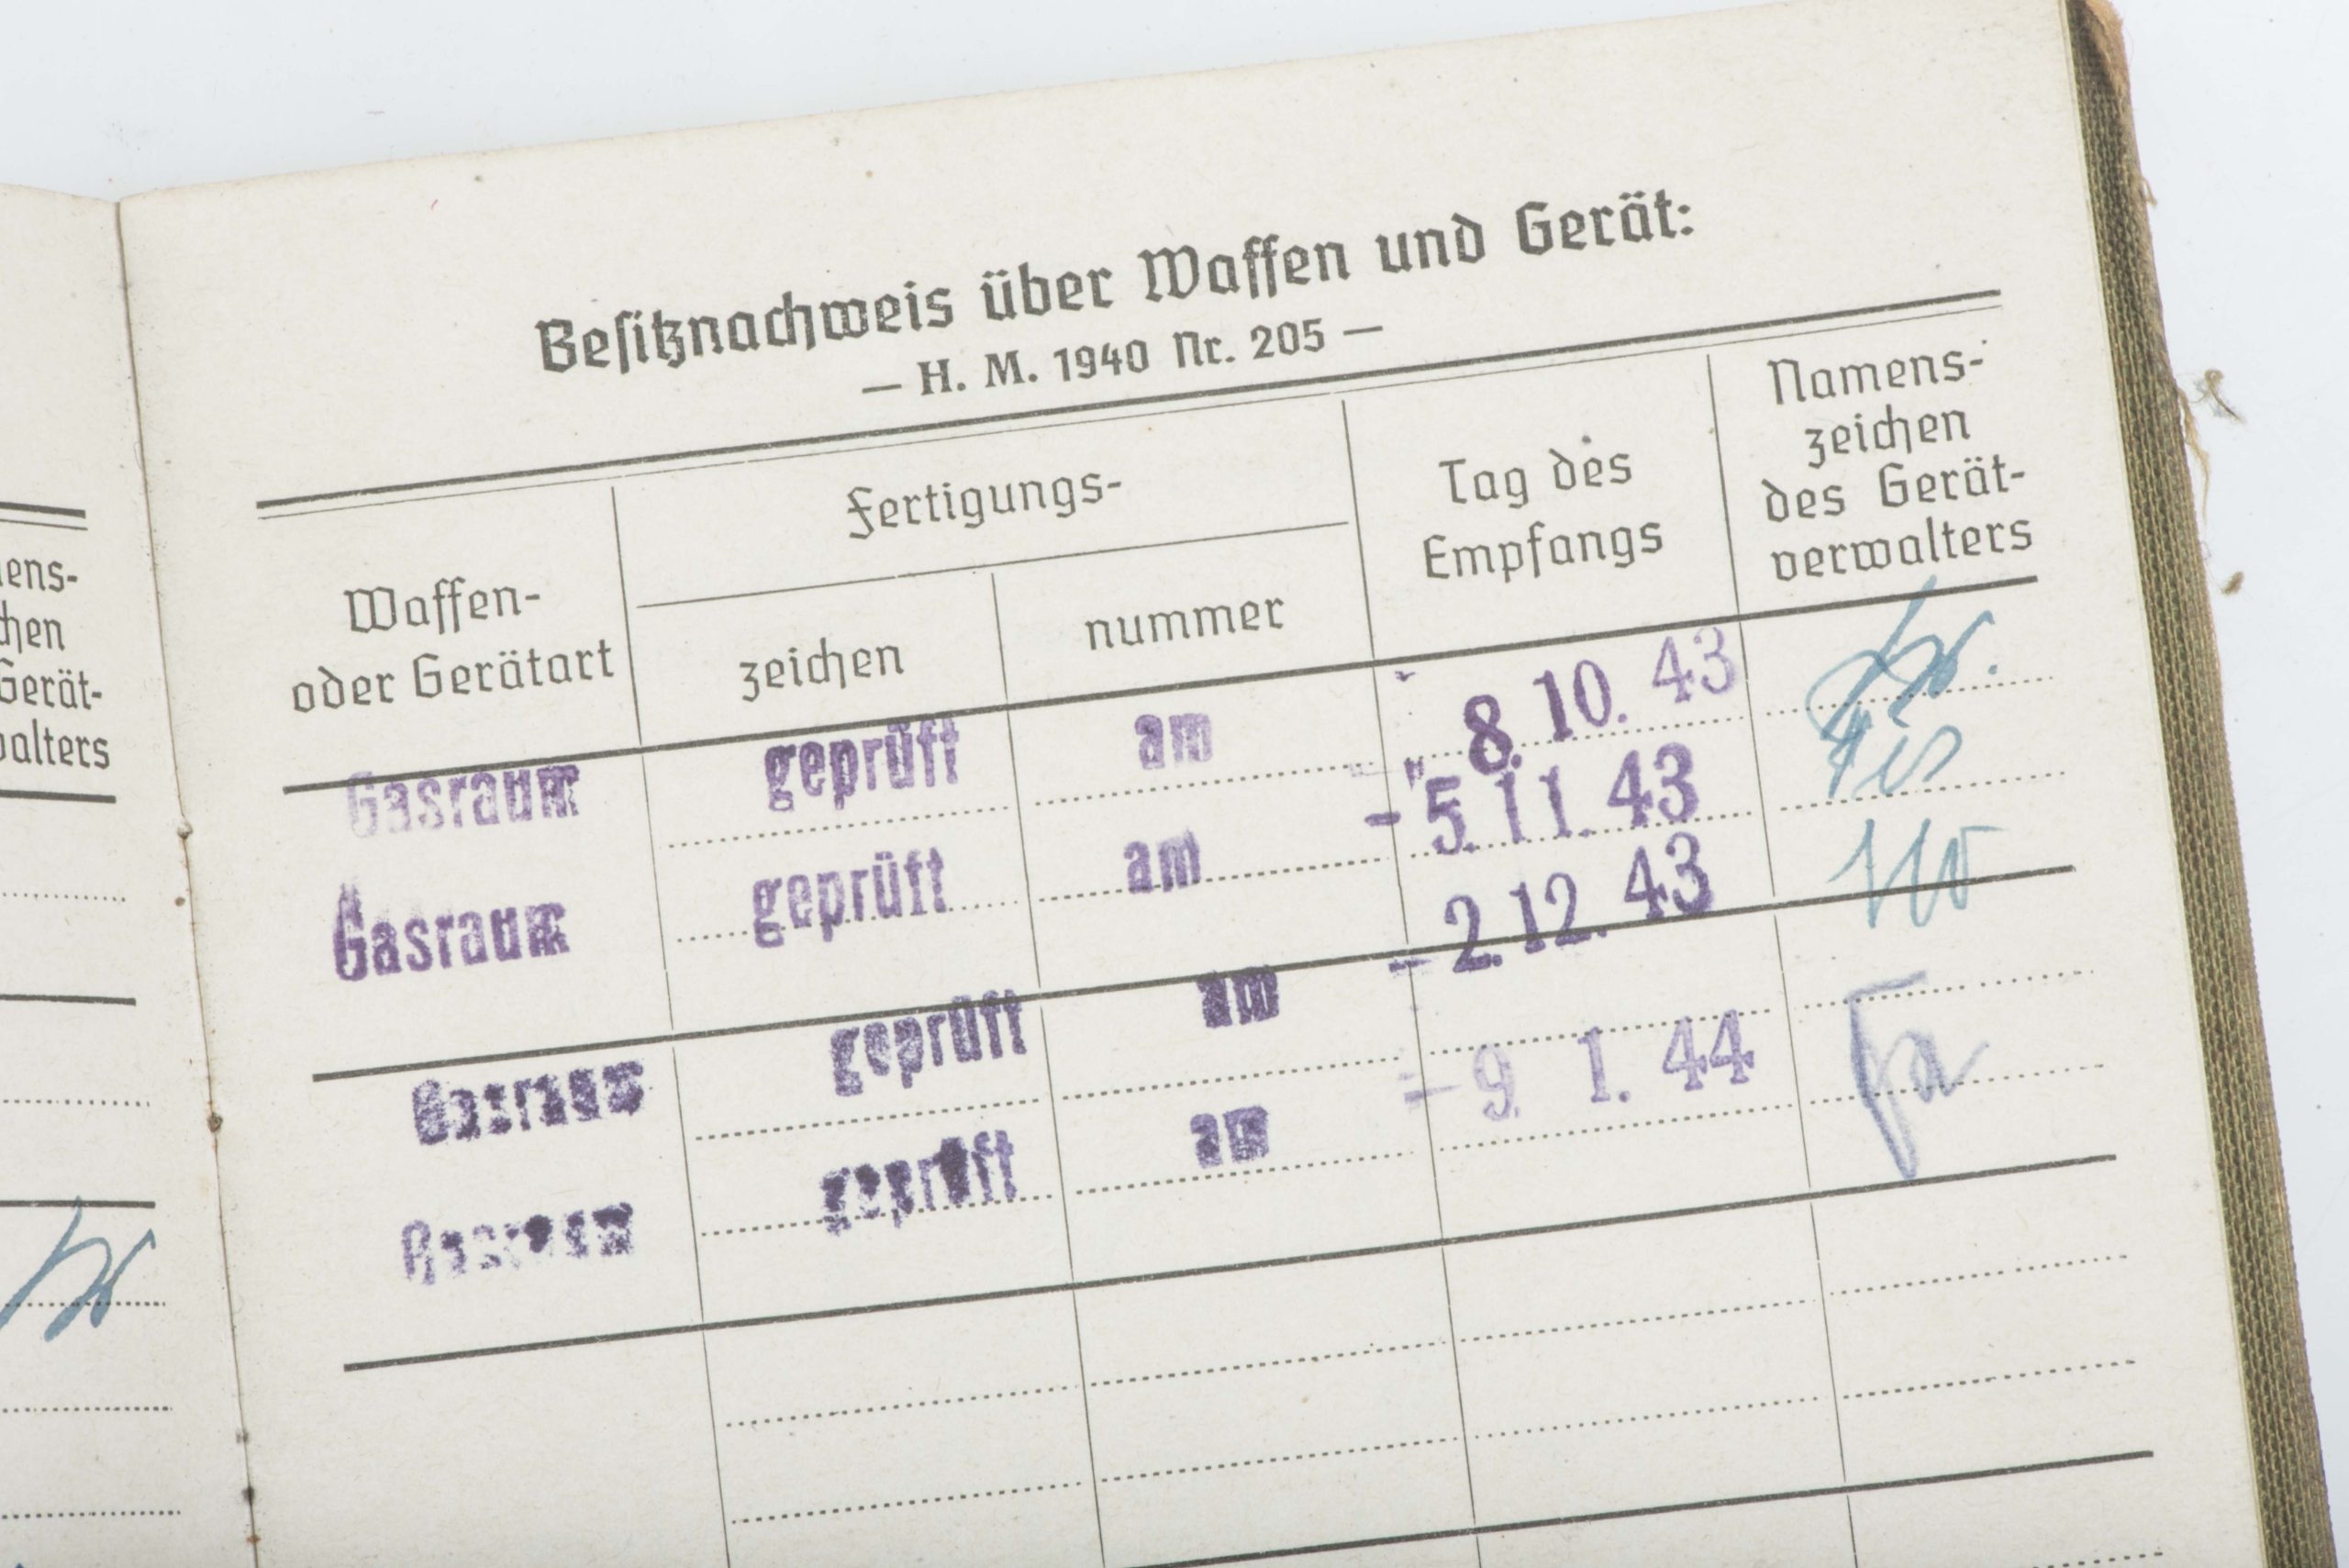 Besitznachweis über Waffen und Gerät:
— H. M. 1940 Nr. 205 —
Waffen-
oder Gerätart
Fertigungs-
zeichen
nummer
Tag des
Empfangs
Namens-
zeichen
des Gerät-
verwalters
Gasraum geprüft am 8. 10. 43
Gasraum geprüft am - 5. 11. 43
Gasraum geprüft am - 2. 12. 43
Gasraum geprüft am - 9. 1. 44
ens-
chen
Gerät-
walters